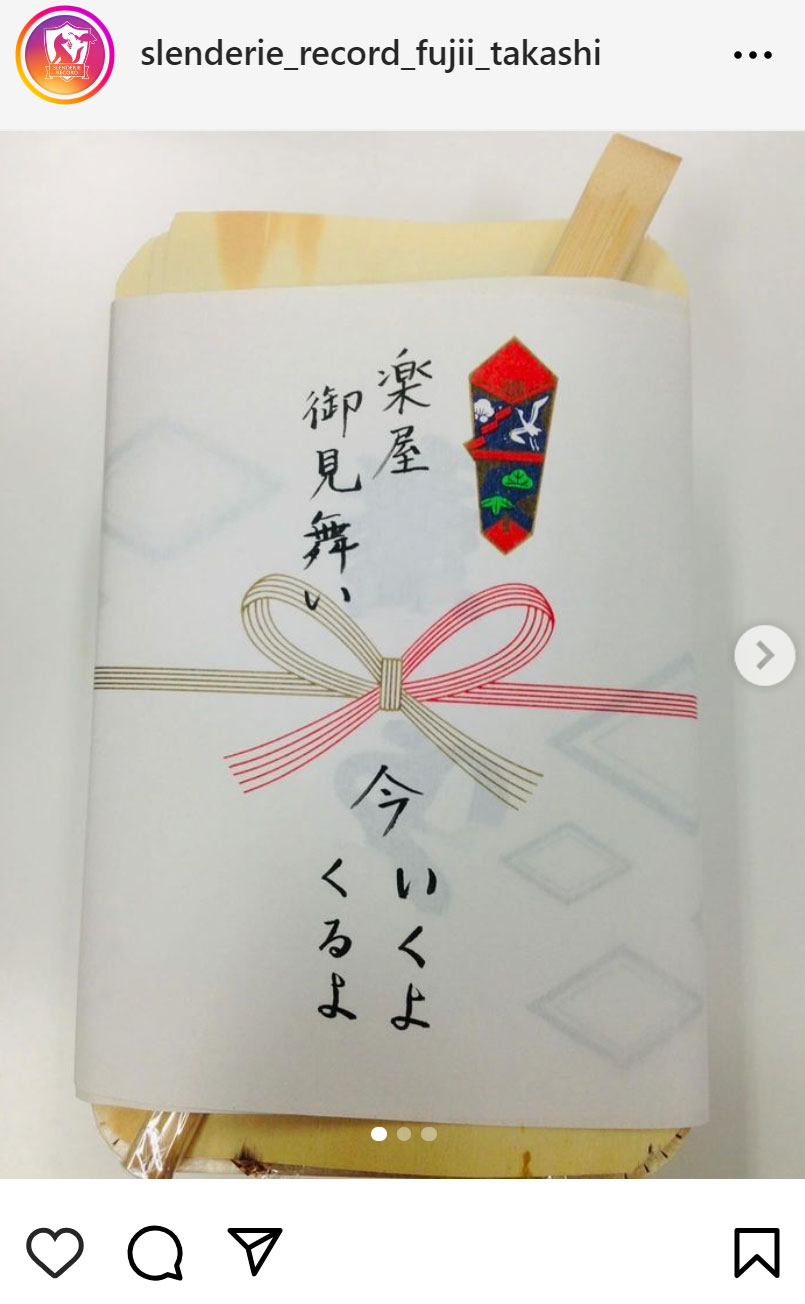 slenderie_record_fujii_takashi
SLENDERIE
RECORD
楽屋
御見舞い
今
いくよ
くるよ